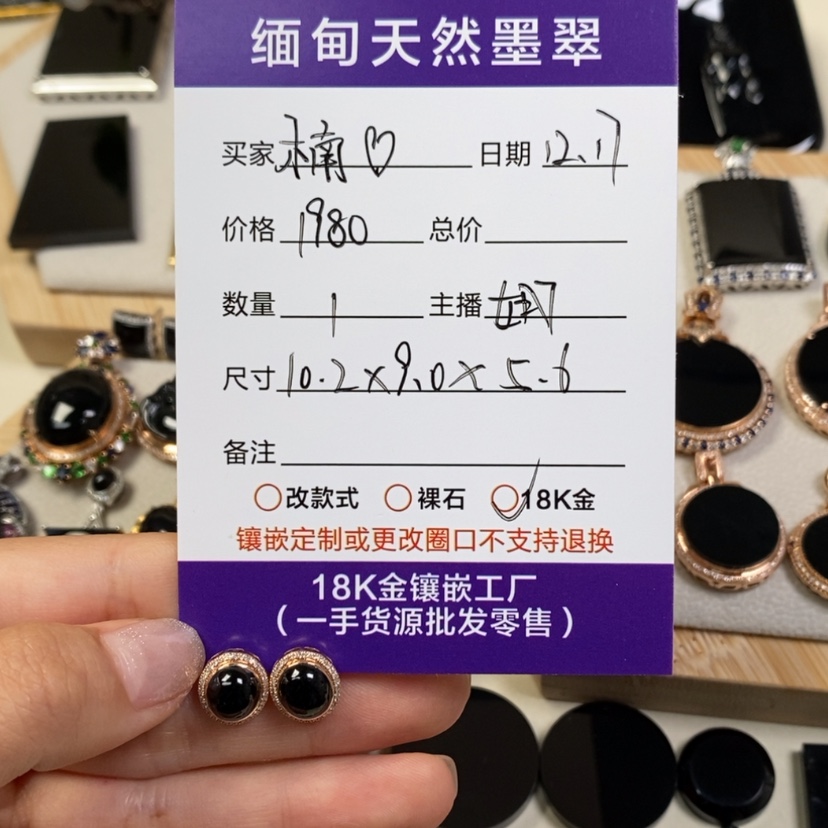 缅甸天然墨翠
买家 楠♡ 日期 12.17
价格 1980 总价
数量 1 主播
尺寸 10.2×9.0×5.6
备注
改款式 裸石 18K金
镶嵌定制或更改圈口不支持退换
18K金镶嵌工厂
（一手货源批发零售）